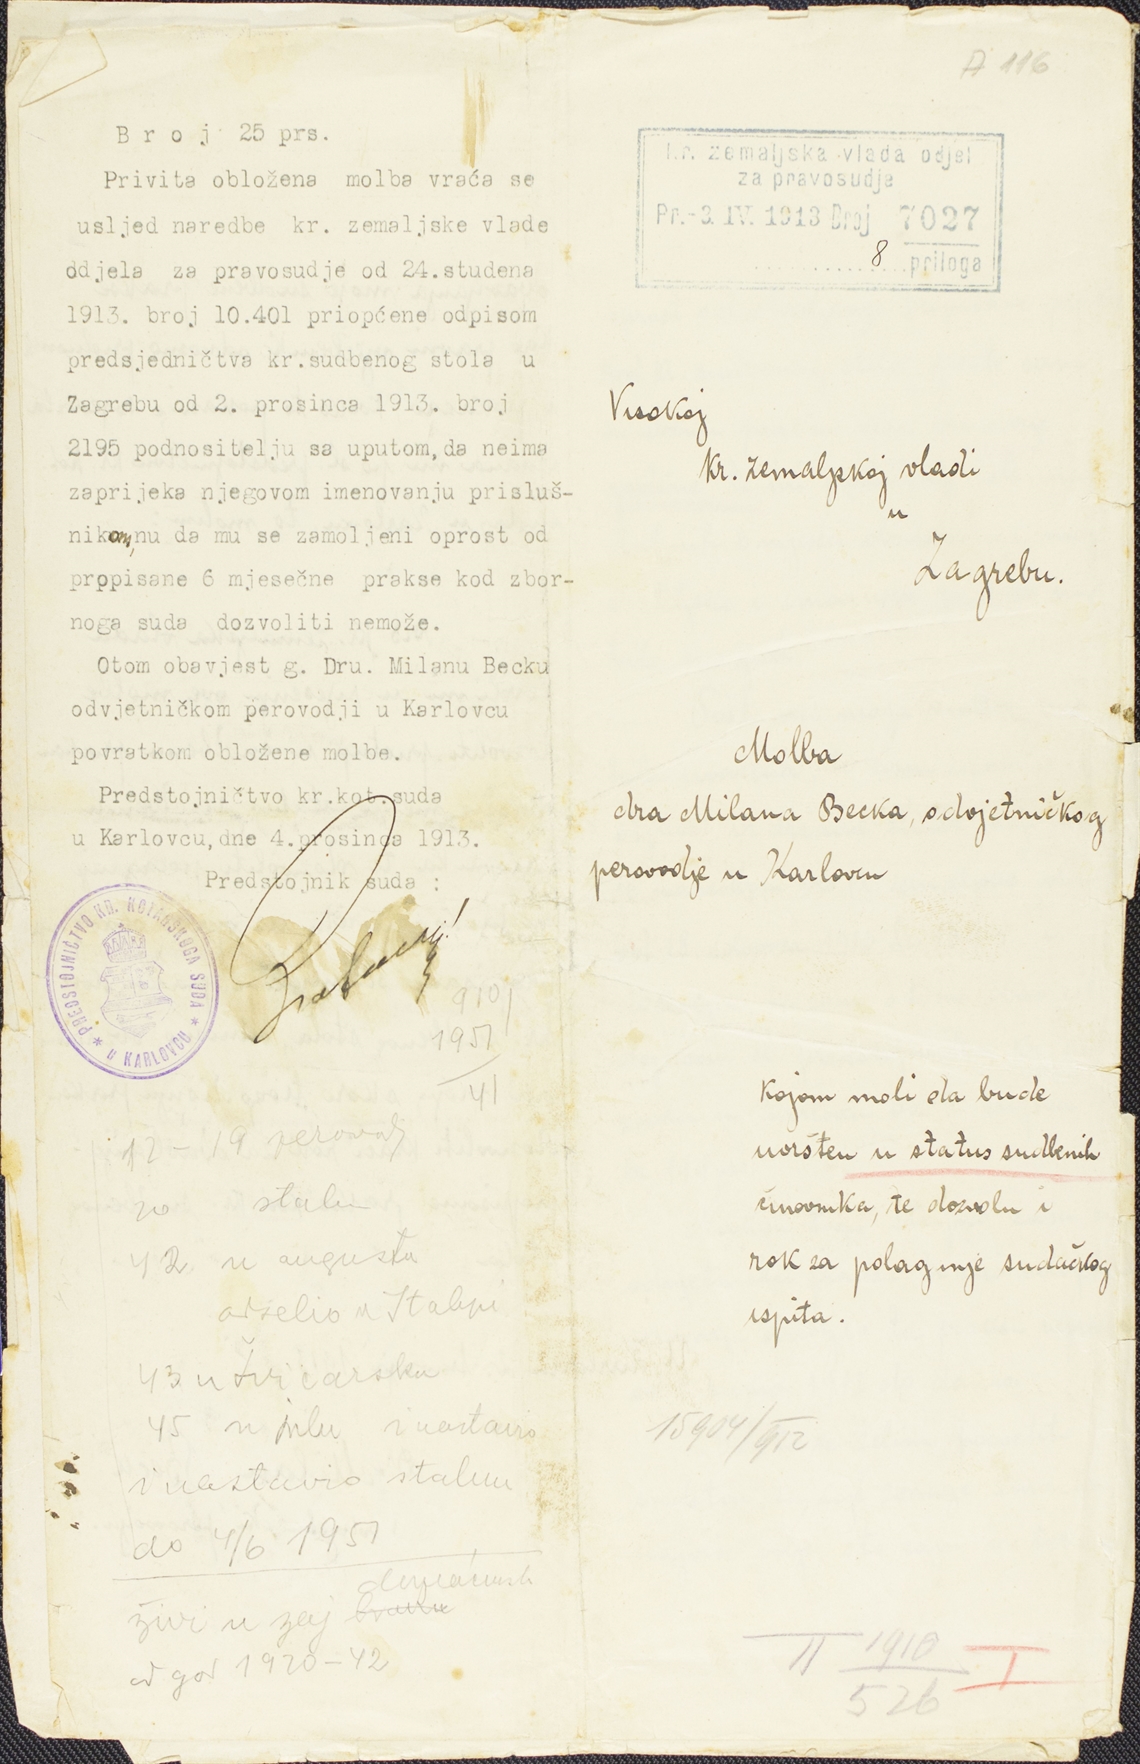 B r o j 25 prs.
Privita obložena molba vraća se
usljed naredbe kr. zemaljske vlade
odjela za pravosudje od 24.studena
1913. broj 10.401 priopćene odpisom
predsjedničtva kr.sudbenog stola u
Zagrebu od 2. prosinca 1913. broj
2195 podnositelju sa uputom,da neima
zaprijeka njegovom imenovanju prisluš-
nikom,nu da mu se zamoljeni oprost od
propisane 6 mjesečne prakse kod zbor-
noga suda dozvoliti nemože.
Otom obavjest g. Dru. Milanu Becku
odvjetničkom perovodji u Karlovcu
povratkom obložene molbe.
Predstojničtvo kr.kot.suda
u Karlovcu,dne 4.prosinca 1913.
Predstojnik suda :
* PREDSTOJNIČTVO KR. KOTARSKOGA SUDA * U KARLOVCU
910/
1951
41
12 – 19 perovodj
20 stalu
42 u augustu
odselio u Italiji
43 u Švicarsku
45 u julu i nastavio
i nastavio stalu
do 4/6 1951
živi u zaj
od god 1920-42
A 116
kr. zemaljska vlada odjel
za pravosudje
Pr.-3.IV.1913 Broj 7027
8 priloga
Visokoj
kr. zemaljskoj vladi
u
Zagrebu.
Molba
dra Milana Becka, odvjetničkog
perovodje u Karlovcu
kojom moli da bude
uvršten u status sudbenih
činovnika, te dozvolu i
rok za polaganje sudačkog
ispita.
15904/912
II 1910 I
526